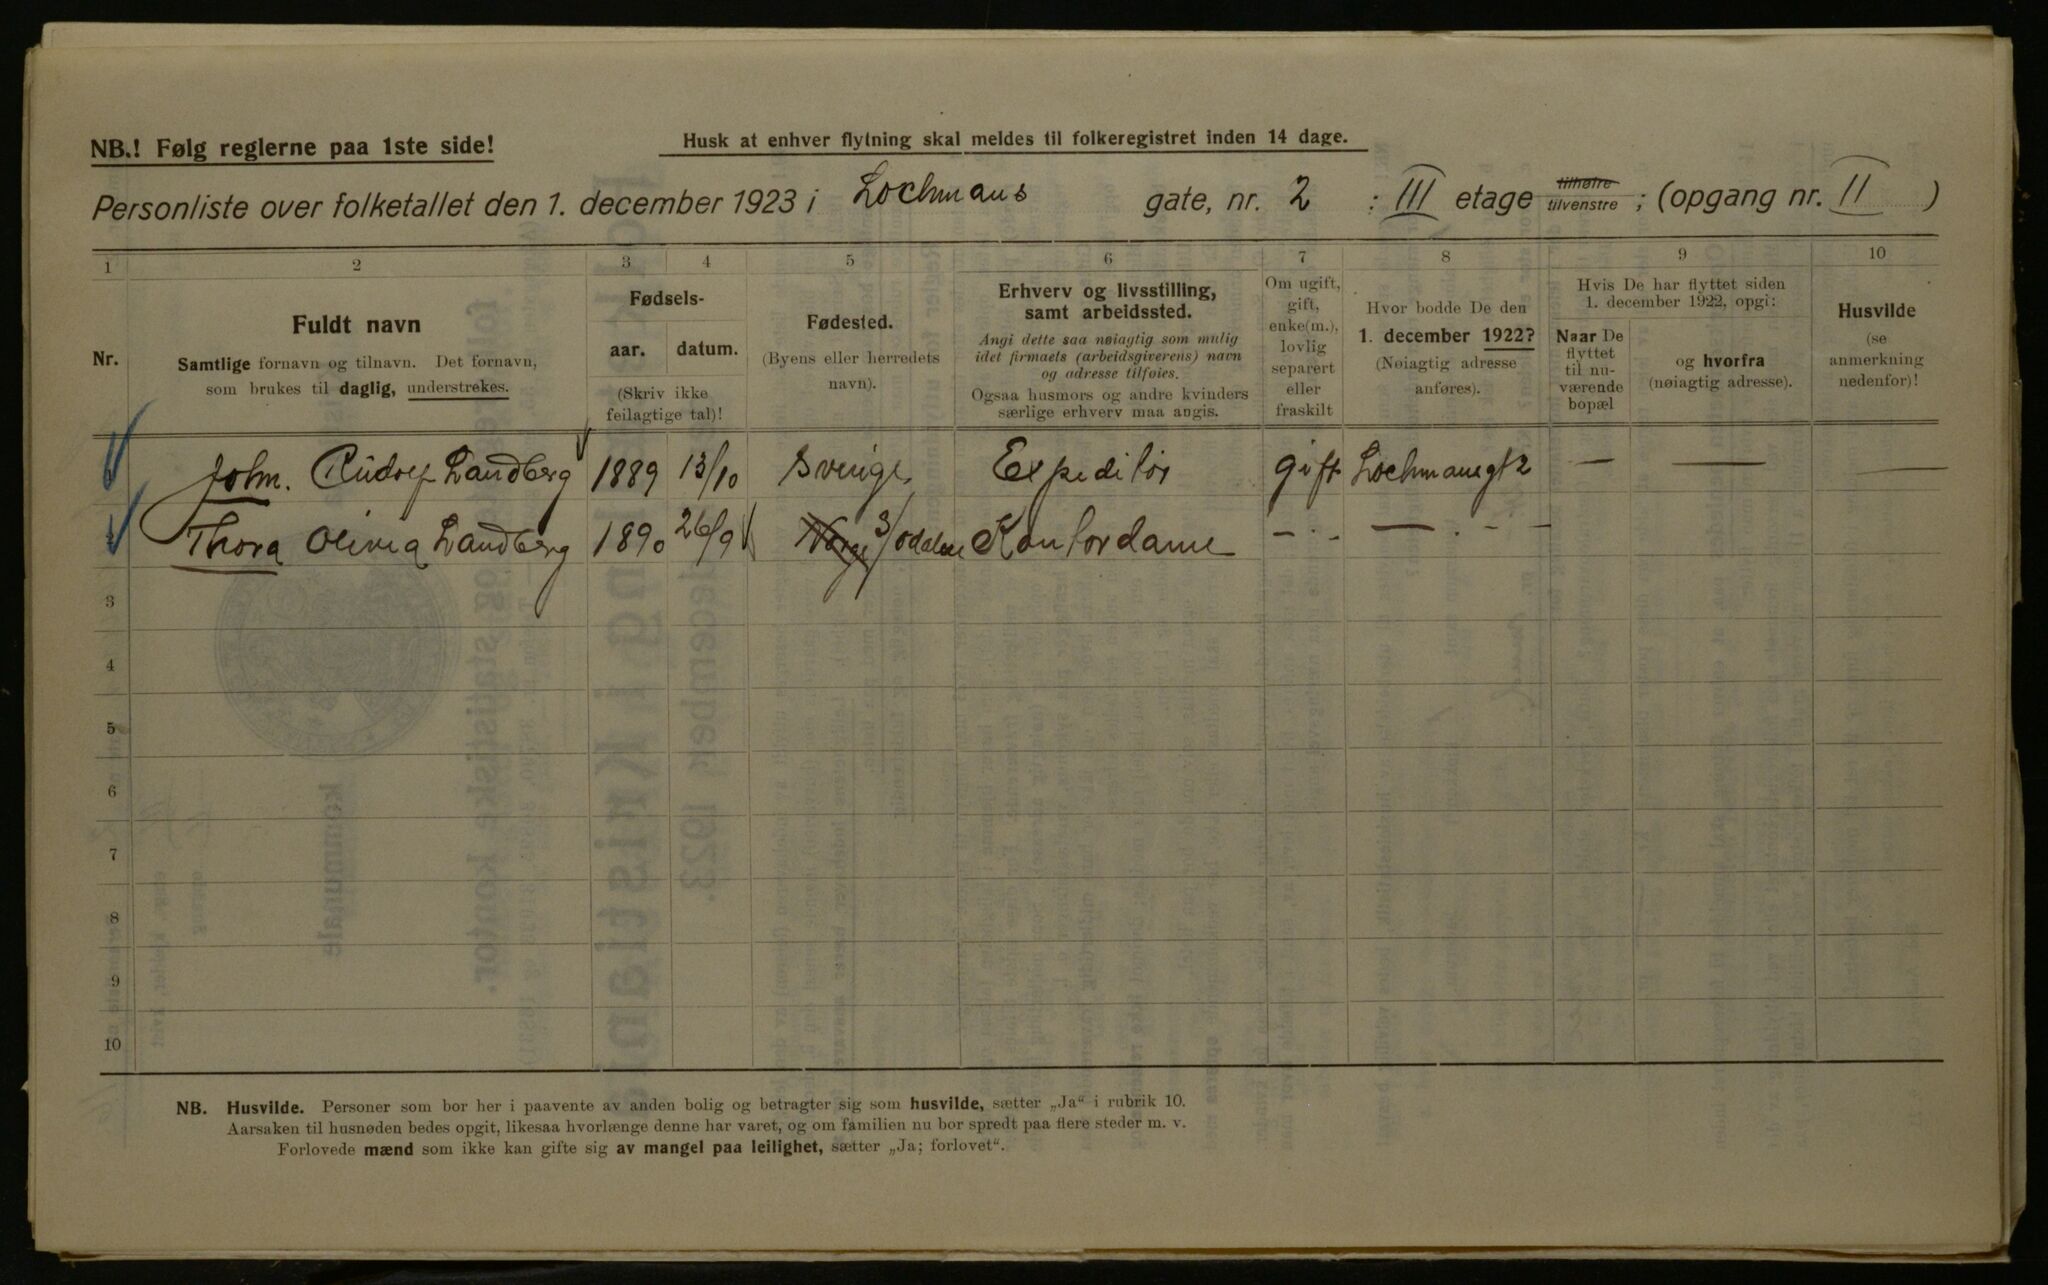 NB.! Følg reglerne paa 1ste side!
Husk at enhver flytning skal meldes til folkeregistret inden 14 dage.
Personliste over folketallet den 1. december 1923 i Lochmans gate, nr. 2 : III etage tilhøire tilvenstre ; (opgang nr. II )
1 2 3 4 5 6 7 8 9 10
Nr.
Fuldt navn
Samtlige fornavn og tilnavn. Det fornavn,
som brukes til daglig, understrekes.
Fødsels-
aar. datum.
(Skriv ikke
feilagtige tal)!
Fødested.
(Byens eller herredets
navn).
Erhverv og livsstilling,
samt arbeidssted.
Angi dette saa nøiagtig som mulig
idet firmaets (arbeidsgiverens) navn
og adresse tilføies.
Ogsaa husmors og andre kvinders
særlige erhverv maa angis.
Om ugift,
gift,
enke(m.),
lovlig
separert
eller
fraskilt
Hvor bodde De den
1. december 1922?
(Nøiagtig adresse
anføres).
Hvis De har flyttet siden
1. december 1922, opgi:
Naar De
flyttet
til nu-
værende
bopæl
og hvorfra
(nøiagtig adresse).
Husvilde
(se
anmerkning
nedenfor)!
John. Rudolf Landberg 1889 13/10 Sverige Expeditør gift Lochmansgt 2 — — —
Thora Olivia Landberg 1890 26/9 Norge S/Odalen Kontordame - . - — . - -
3
4
5
6
7
8
9
10
NB. Husvilde. Personer som bor her i paavente av anden bolig og betragter sig som husvilde, sætter „Ja“ i rubrik 10.
Aarsaken til husnøden bedes opgit, likesaa hvorlænge denne har varet, og om familien nu bor spredt paa flere steder m. v.
Forlovede mænd som ikke kan gifte sig av mangel paa leilighet, sætter „Ja; forlovet“.